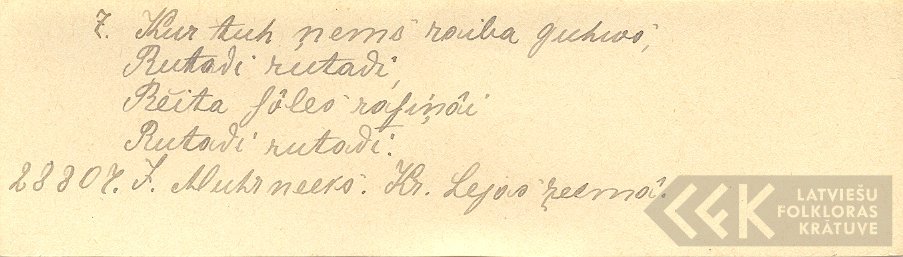 7. Kur tuh ņems raiba guhws,
Rutadi rutadi,
Rēita sôles rasiņâi
Rutadi rutadi.
28807. J. Muhrneeks. Kr. Lejas zeemâ.
LATVIEŠU
FOLKLORAS
KRĀTUVE